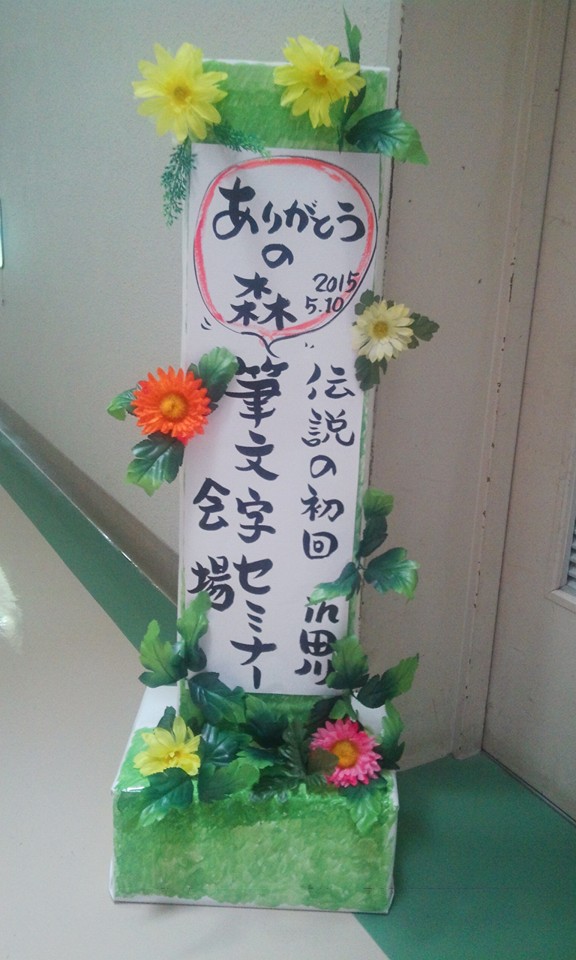 ありがとう
の
森
2015
5.10
伝説の初回 in 田川
筆文字セミナー
会場